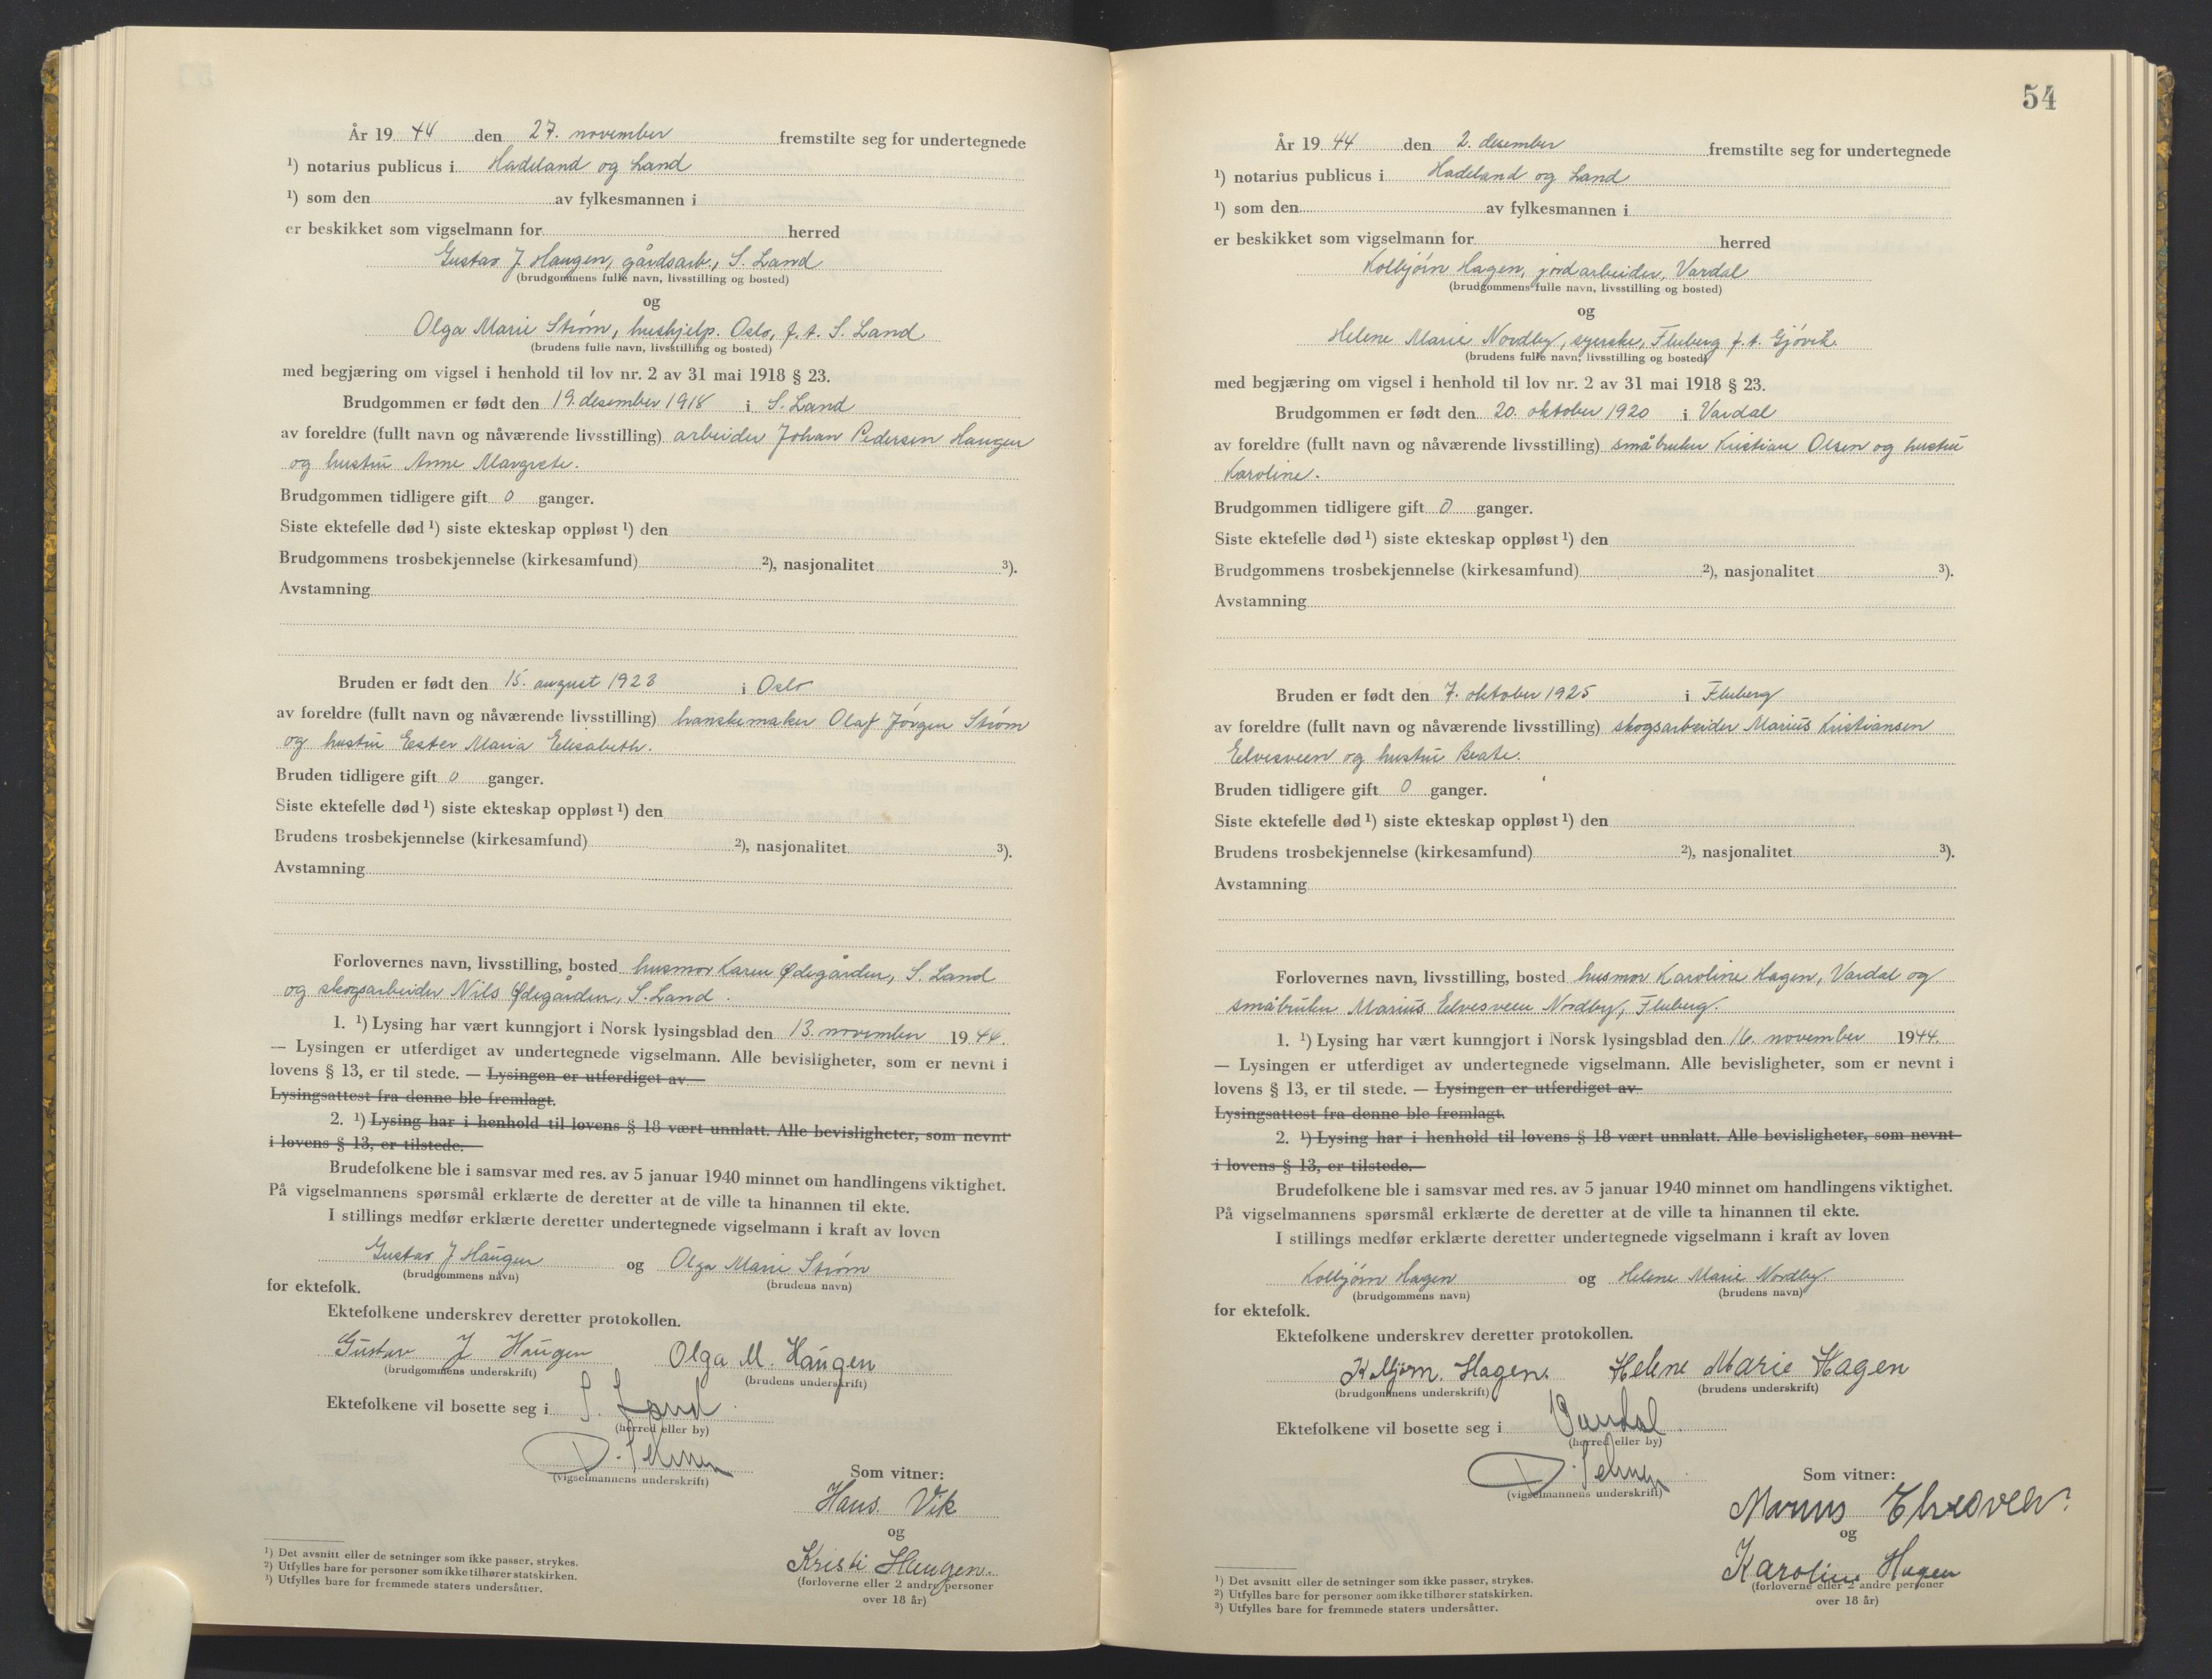 År 19 44 den 27. november fremstilte seg for undertegnede
¹) notarius publicus i Hadeland og Land
¹) som den av fylkesmannen i
er beskikket som vigselmann for herred
Gustav J Haugen, gårdsarb., S. Land
(brudgommens fulle navn, livsstilling og bosted)
og
Olga Marie Strøm, hushjelp. Oslo, f. t. S. Land
(brudens fulle navn, livsstilling og bosted)
med begjæring om vigsel i henhold til lov nr. 2 av 31 mai 1918 § 23.
Brudgommen er født den 19. desember 1918 i S. Land
av foreldre (fullt navn og nåværende livsstilling) arbeider Johan Pedersen Haugen
og hustru Anne Margrete.
Brudgommen tidligere gift 0 ganger.
Siste ektefelle død ¹) siste ekteskap oppløst ¹) den
Brudgommens trosbekjennelse (kirkesamfund) ²), nasjonalitet ³).
Avstamning
Bruden er født den 15. august 1923 i Oslo
av foreldre (fullt navn og nåværende livsstilling) hanskemaker Olaf Jørgen Strøm
og hustru Ester Maria Elisabeth.
Bruden tidligere gift 0 ganger.
Siste ektefelle død ¹) siste ekteskap oppløst ¹) den
Brudens trosbekjennelse (kirkesamfund) ²), nasjonalitet ³).
Avstamning
Forlovernes navn, livsstilling, bosted husmor Karen Ødegården, S. Land
og skogsarbeider Nils Ødegården, S. Land.
1. ¹) Lysing har vært kunngjort i Norsk lysingsblad den 13. november 19 44.
— Lysingen er utferdiget av undertegnede vigselmann. Alle bevisligheter, som er nevnt i
lovens § 13, er til stede. — Lysingen er utferdiget av
Lysingsattest fra denne ble fremlagt.
2. ¹) Lysing har i henhold til lovens § 18 vært unnlatt. Alle bevisligheter, som nevnt
i lovens § 13, er tilstede.
Brudefolkene ble i samsvar med res. av 5 januar 1940 minnet om handlingens viktighet.
På vigselmannens spørsmål erklærte de deretter at de ville ta hinannen til ekte.
I stillings medfør erklærte deretter undertegnede vigselmann i kraft av loven
Gustav J Haugen og Olga Marie Strøm
(brudgommens navn) (brudens navn)
for ektefolk.
Ektefolkene underskrev deretter protokollen.
Gustav J Haugen Olga M. Haugen
(brudgommens underskrift) (brudens underskrift)
Ektefolkene vil bosette seg i S. Land.
(herred eller by)
(vigselmannens underskrift)
Som vitner:
Hans Vik
og
Kristi Haugen.
(forloverne eller 2 andre personer
over 18 år)
¹) Det avsnitt eller de setninger som ikke passer, strykes.
²) Utfylles bare for personer som ikke tilhører statskirken.
³) Utfylles bare for fremmede staters undersåtter.
54
År 19 44 den 2. desember fremstilte seg for undertegnede
¹) notarius publicus i Hadeland og Land
¹) som den av fylkesmannen i
er beskikket som vigselmann for herred
Kolbjørn Hagen, jordarbeider, Vardal
(brudgommens fulle navn, livsstilling og bosted)
og
Helene Marie Nordby, syerske, Fluberg f. t. Gjøvik.
(brudens fulle navn, livsstilling og bosted)
med begjæring om vigsel i henhold til lov nr. 2 av 31 mai 1918 § 23.
Brudgommen er født den 20. oktober 1920 i Vardal
av foreldre (fullt navn og nåværende livsstilling) småbruker Kristian Olsen og hustru
Karoline.
Brudgommen tidligere gift 0 ganger.
Siste ektefelle død ¹) siste ekteskap oppløst ¹) den
Brudgommens trosbekjennelse (kirkesamfund) ²), nasjonalitet ³).
Avstamning
Bruden er født den 7. oktober 1925 i Fluberg
av foreldre (fullt navn og nåværende livsstilling) skogsarbeider Marius Kristiansen
Elvesveen og hustru Beate.
Bruden tidligere gift 0 ganger.
Siste ektefelle død ¹) siste ekteskap oppløst ¹) den
Brudens trosbekjennelse (kirkesamfund) ²), nasjonalitet ³).
Avstamning
Forlovernes navn, livsstilling, bosted husmor Karoline Hagen, Vardal og
småbruker Marius Elvesveen Nordby, Fluberg.
1. ¹) Lysing har vært kunngjort i Norsk lysingsblad den 16. november 1944.
— Lysingen er utferdiget av undertegnede vigselmann. Alle bevisligheter, som er nevnt i
lovens § 13, er til stede. — Lysingen er utferdiget av
Lysingsattest fra denne ble fremlagt.
2. ¹) Lysing har i henhold til lovens § 18 vært unnlatt. Alle bevisligheter, som nevnt
i lovens § 13, er tilstede.
Brudefolkene ble i samsvar med res. av 5 januar 1940 minnet om handlingens viktighet.
På vigselmannens spørsmål erklærte de deretter at de ville ta hinannen til ekte.
I stillings medfør erklærte deretter undertegnede vigselmann i kraft av loven
Kolbjørn Hagen og Helene Marie Nordby.
(brudgommens navn) (brudens navn)
for ektefolk.
Ektefolkene underskrev deretter protokollen.
Kolbjørn. Hagen. Helene Marie Hagen
(brudgommens underskrift) (brudens underskrift)
Ektefolkene vil bosette seg i Vardal.
(herred eller by)
(vigselmannens underskrift)
Som vitner:
og
Karoline Hagen
(forloverne eller 2 andre personer
over 18 år)
¹) Det avsnitt eller de setninger som ikke passer, strykes.
²) Utfylles bare for personer som ikke tilhører statskirken.
³) Utfylles bare for fremmede staters undersåtter.